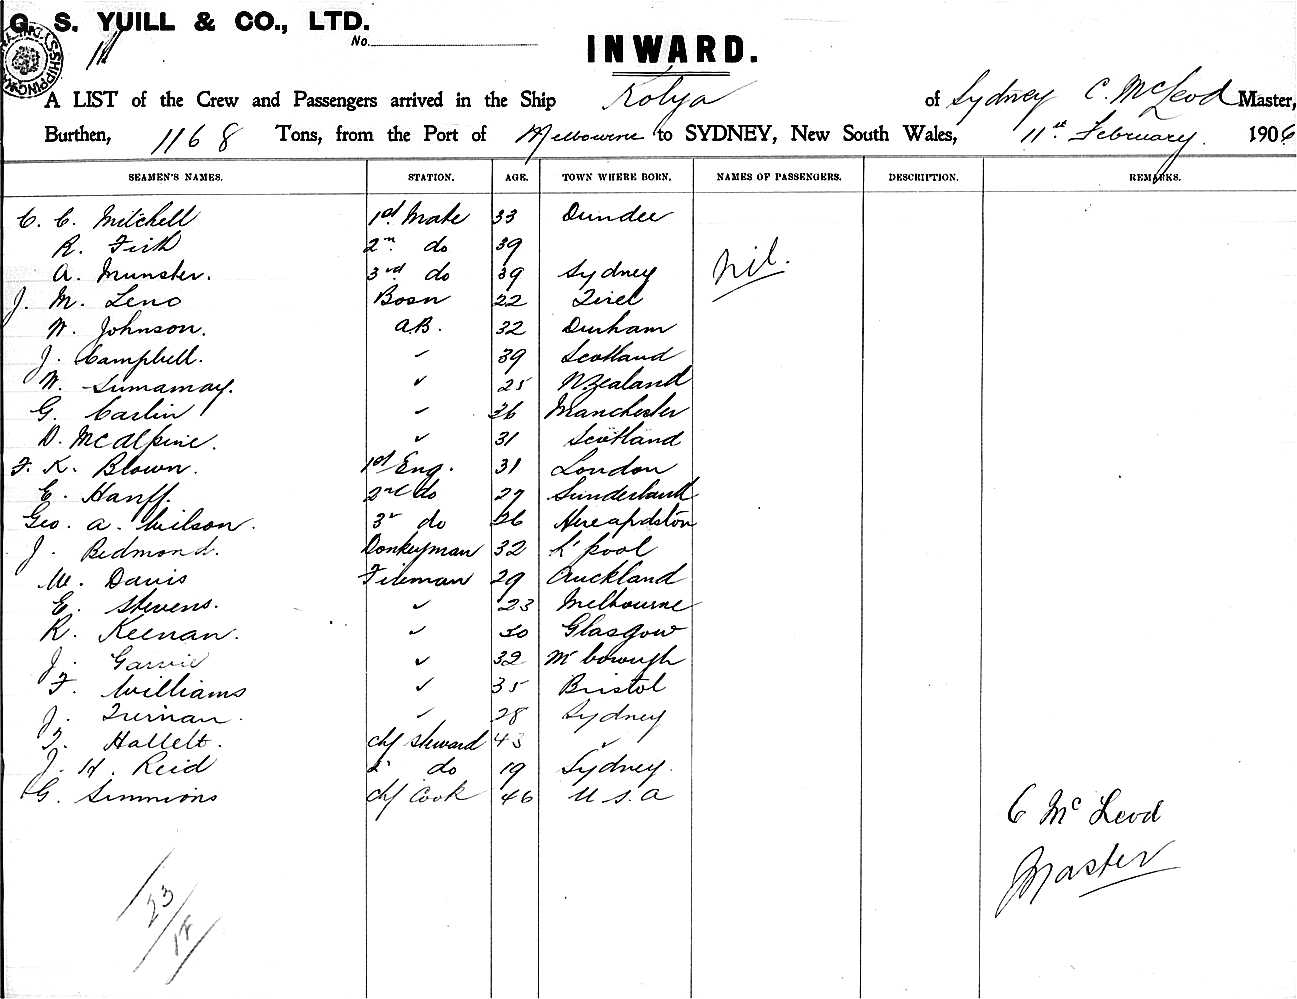 G. S. YUILL & CO., LTD.
No.
INWARD.
A LIST of the Crew and Passengers arrived in the Ship Kolya of Sydney C. McLeod Master,
Burthen, 1168 Tons, from the Port of Melbourne to SYDNEY, New South Wales, 11th February 1906
SEAMEN'S NAMES. STATION. AGE. TOWN WHERE BORN. NAMES OF PASSENGERS. DESCRIPTION. REMARKS.
C. C. Mitchell 1st Mate 33 Dundee
R. Firth 2nd do 39
A. Munster. 3rd do 39 Sydney nil.
J. M. Leno Bosn 22
W. Johnson. A.B. 32 Durham
J. Campbell. " 39 Scotland
W. " 25 N Zealand
G. Carlin " 36 Manchester
D. McAlpine. " 31 Scotland
F. K. Blown. 1st Eng. 31 London
E. Hanff. 2nd do 27 Sunderland
Geo. A. Wilson. 3r do 26
J. Redmond. Donkeyman 32 L'pool
W. Davis Fireman 29 Auckland
E. Stevens. " 23 Melbourne
R. Keenan. " 30 Glasgow
J. Garvie " 32 M'borough
F. Williams " 35 Bristol
J. " 28 Sydney
Hallett. Chf Steward 43 "
J. H. Reid 2 do 19 Sydney.
G. Simmions Chf Cook 46 U.S.A
C McLeod
Master
23